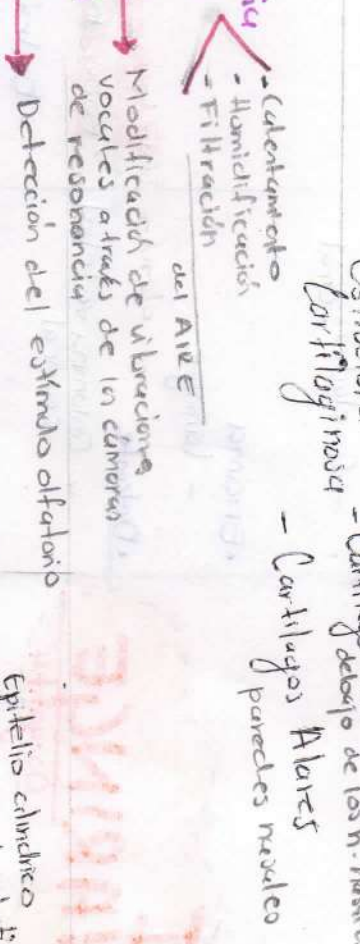 - Calentamiento
- Humidificación
- Filtración
del AIRE
Modificación de vibraciones
vocales a través de las cámaras
de resonancia
Detección del estímulo olfatorio
Cartilaginosa
debajo de los
- Cartílagos Alares
paredes nasales
Epitelio cilíndrico